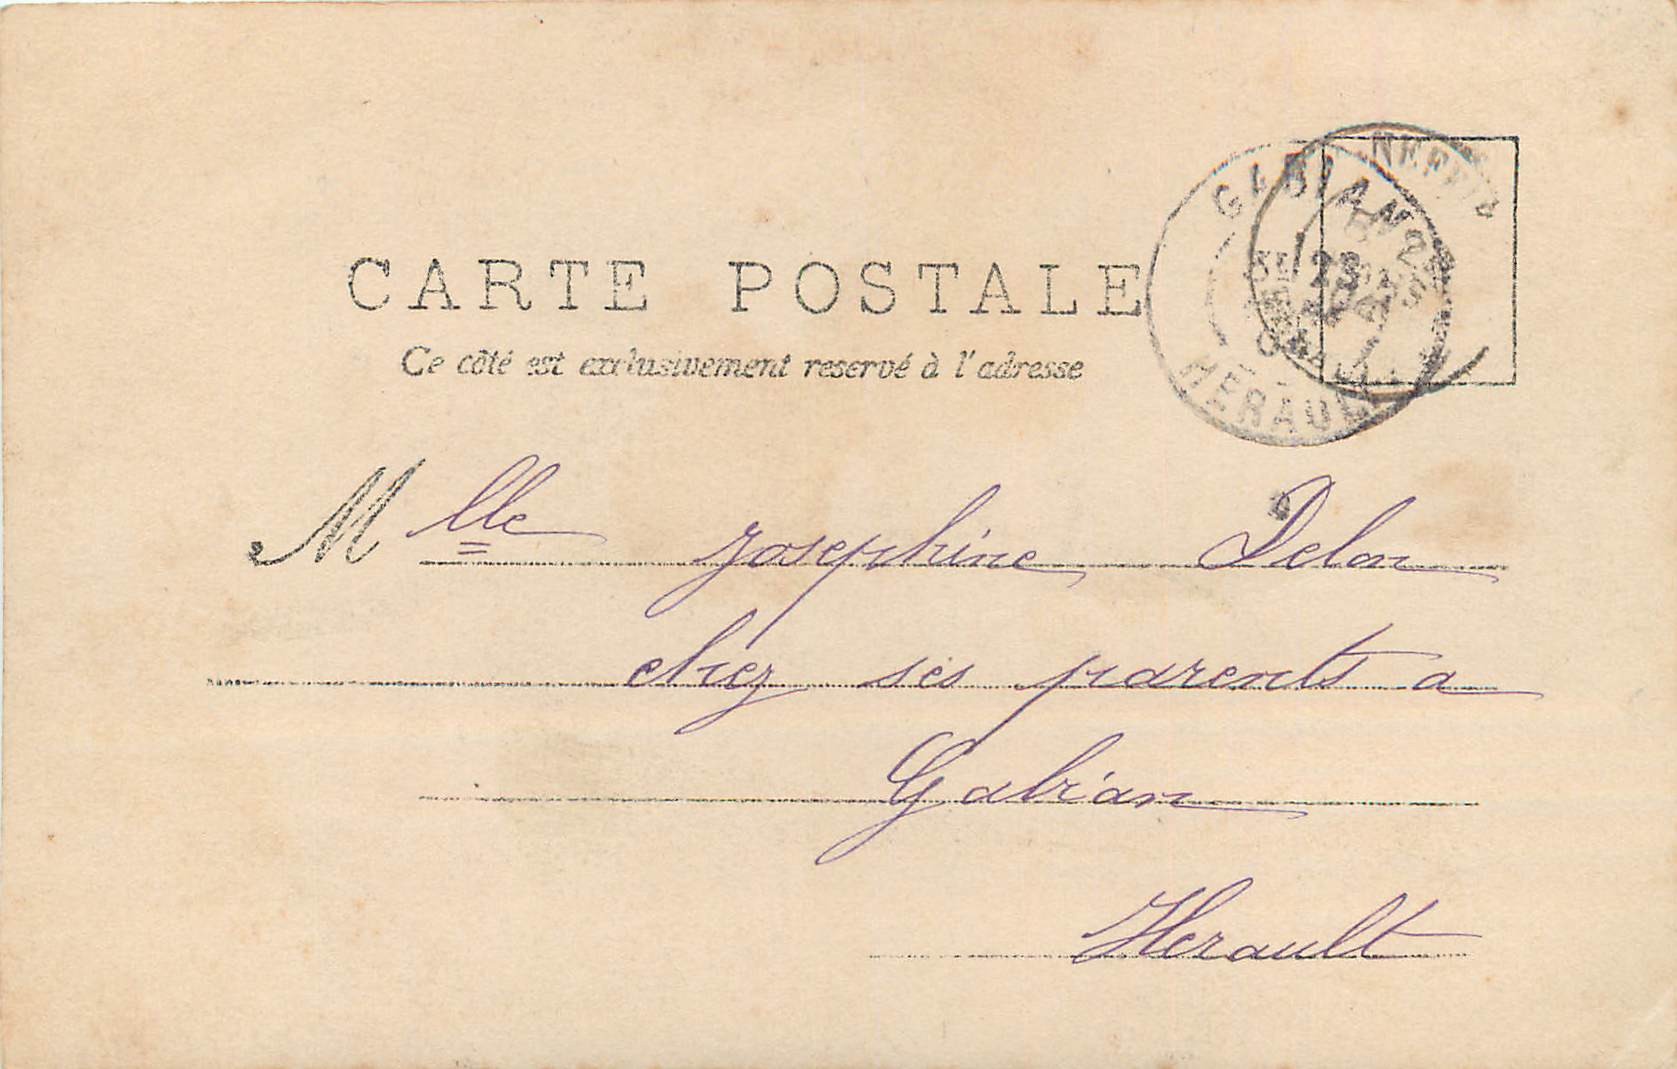 CARTE POSTALE
Ce côté est exclusivement reservé à l'adresse
GABIAN
23
HERAULT
Mlle Josephine Delon
chez ses parents a
Gabian
Herault